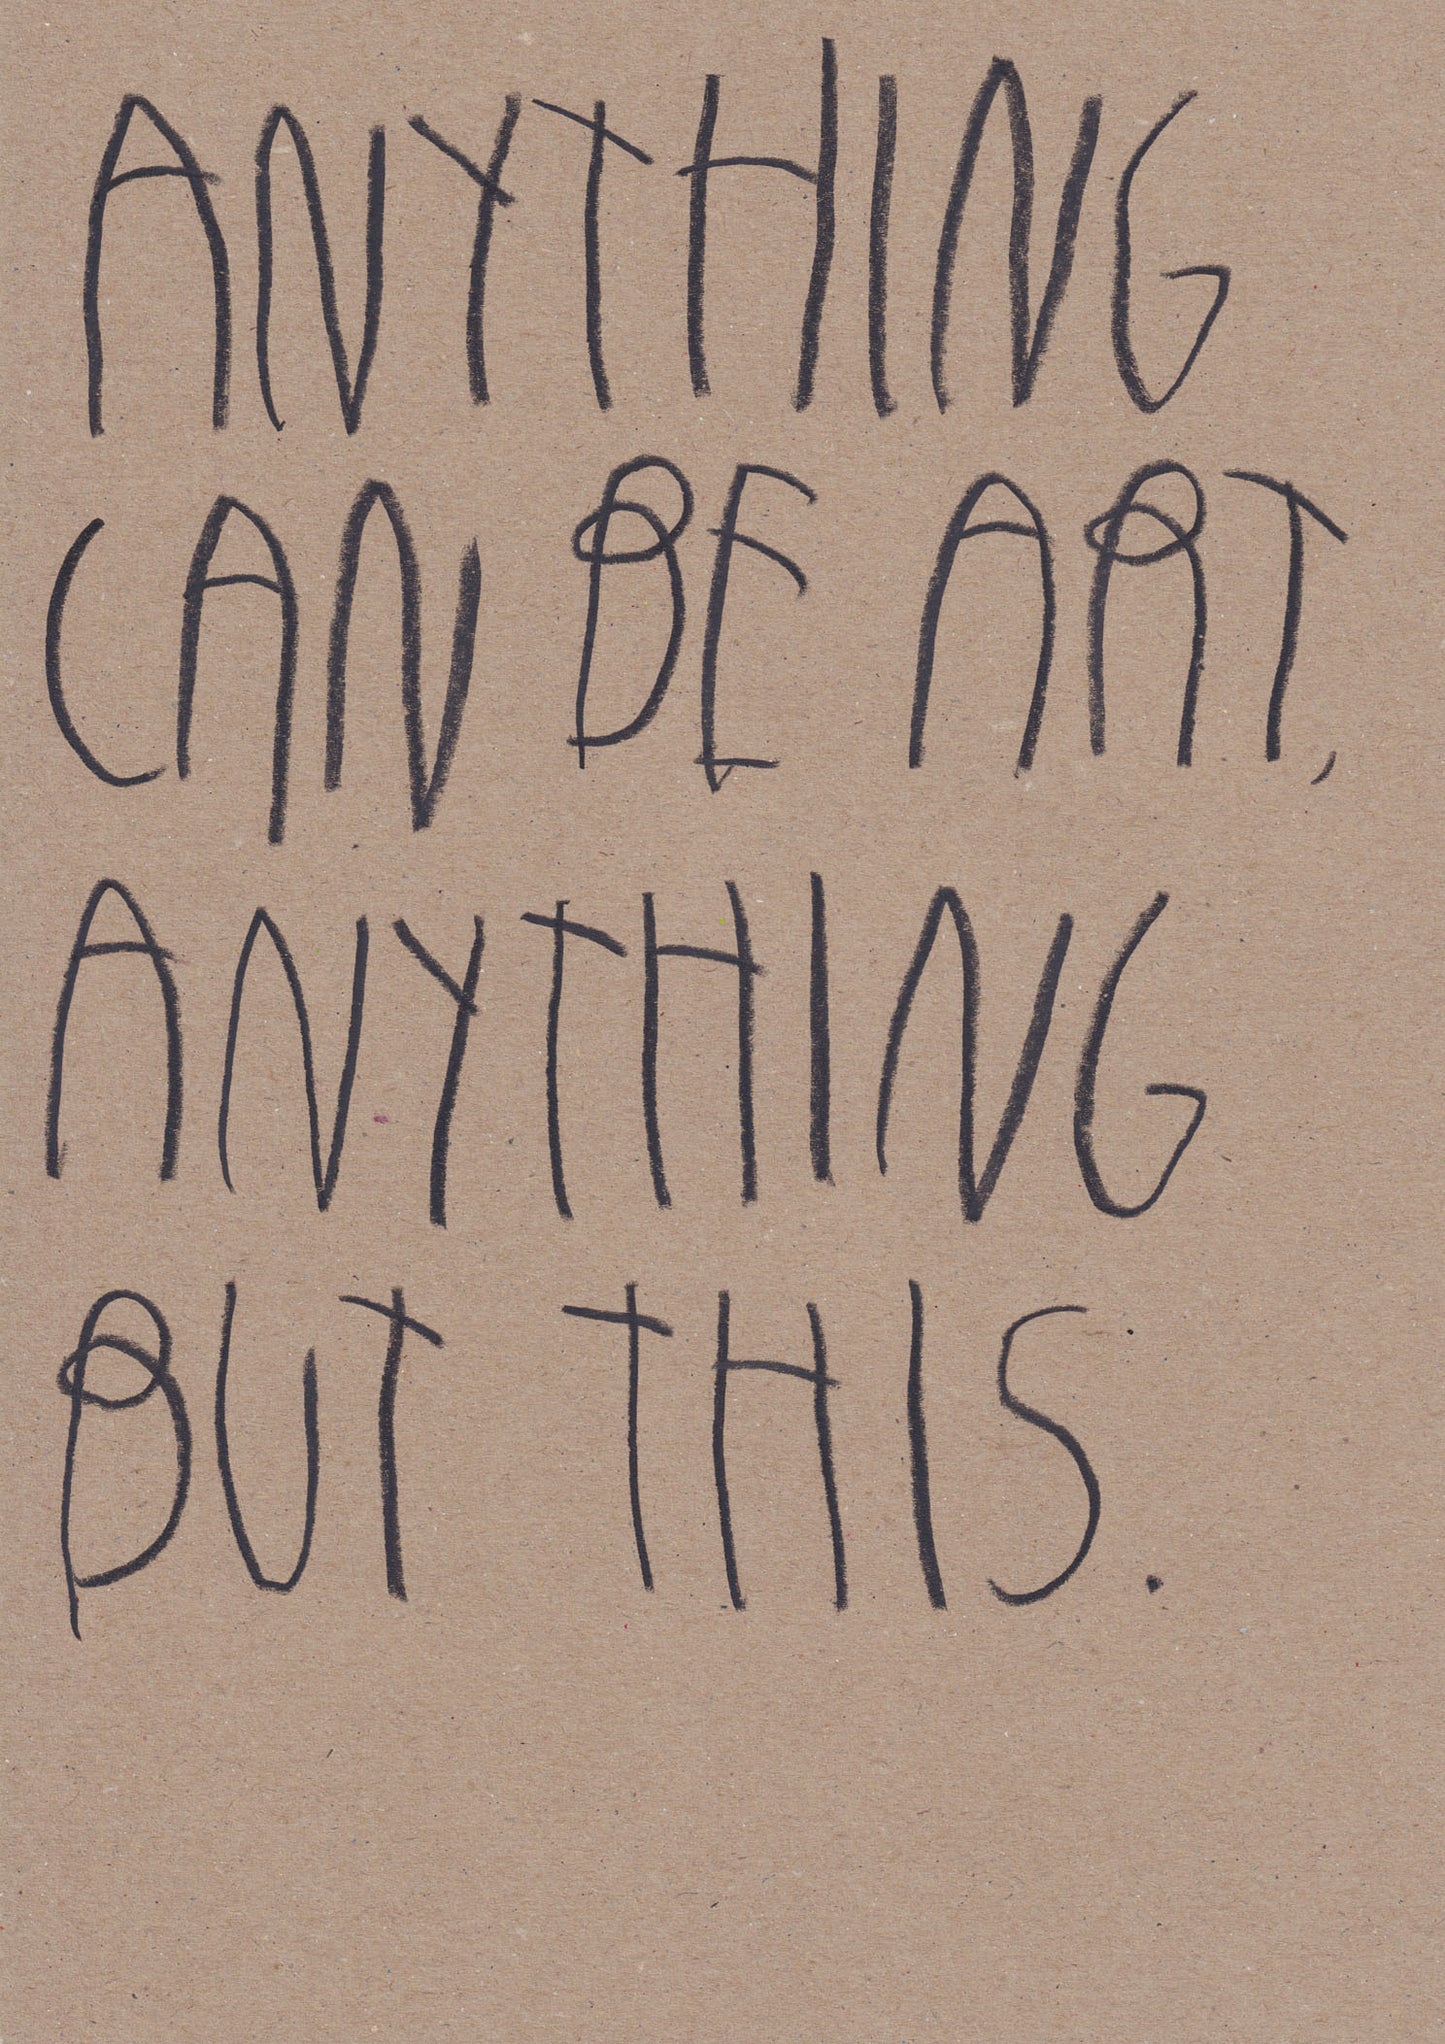 ANYTHING
CAN BE ART,
ANYTHING
BUT THIS.